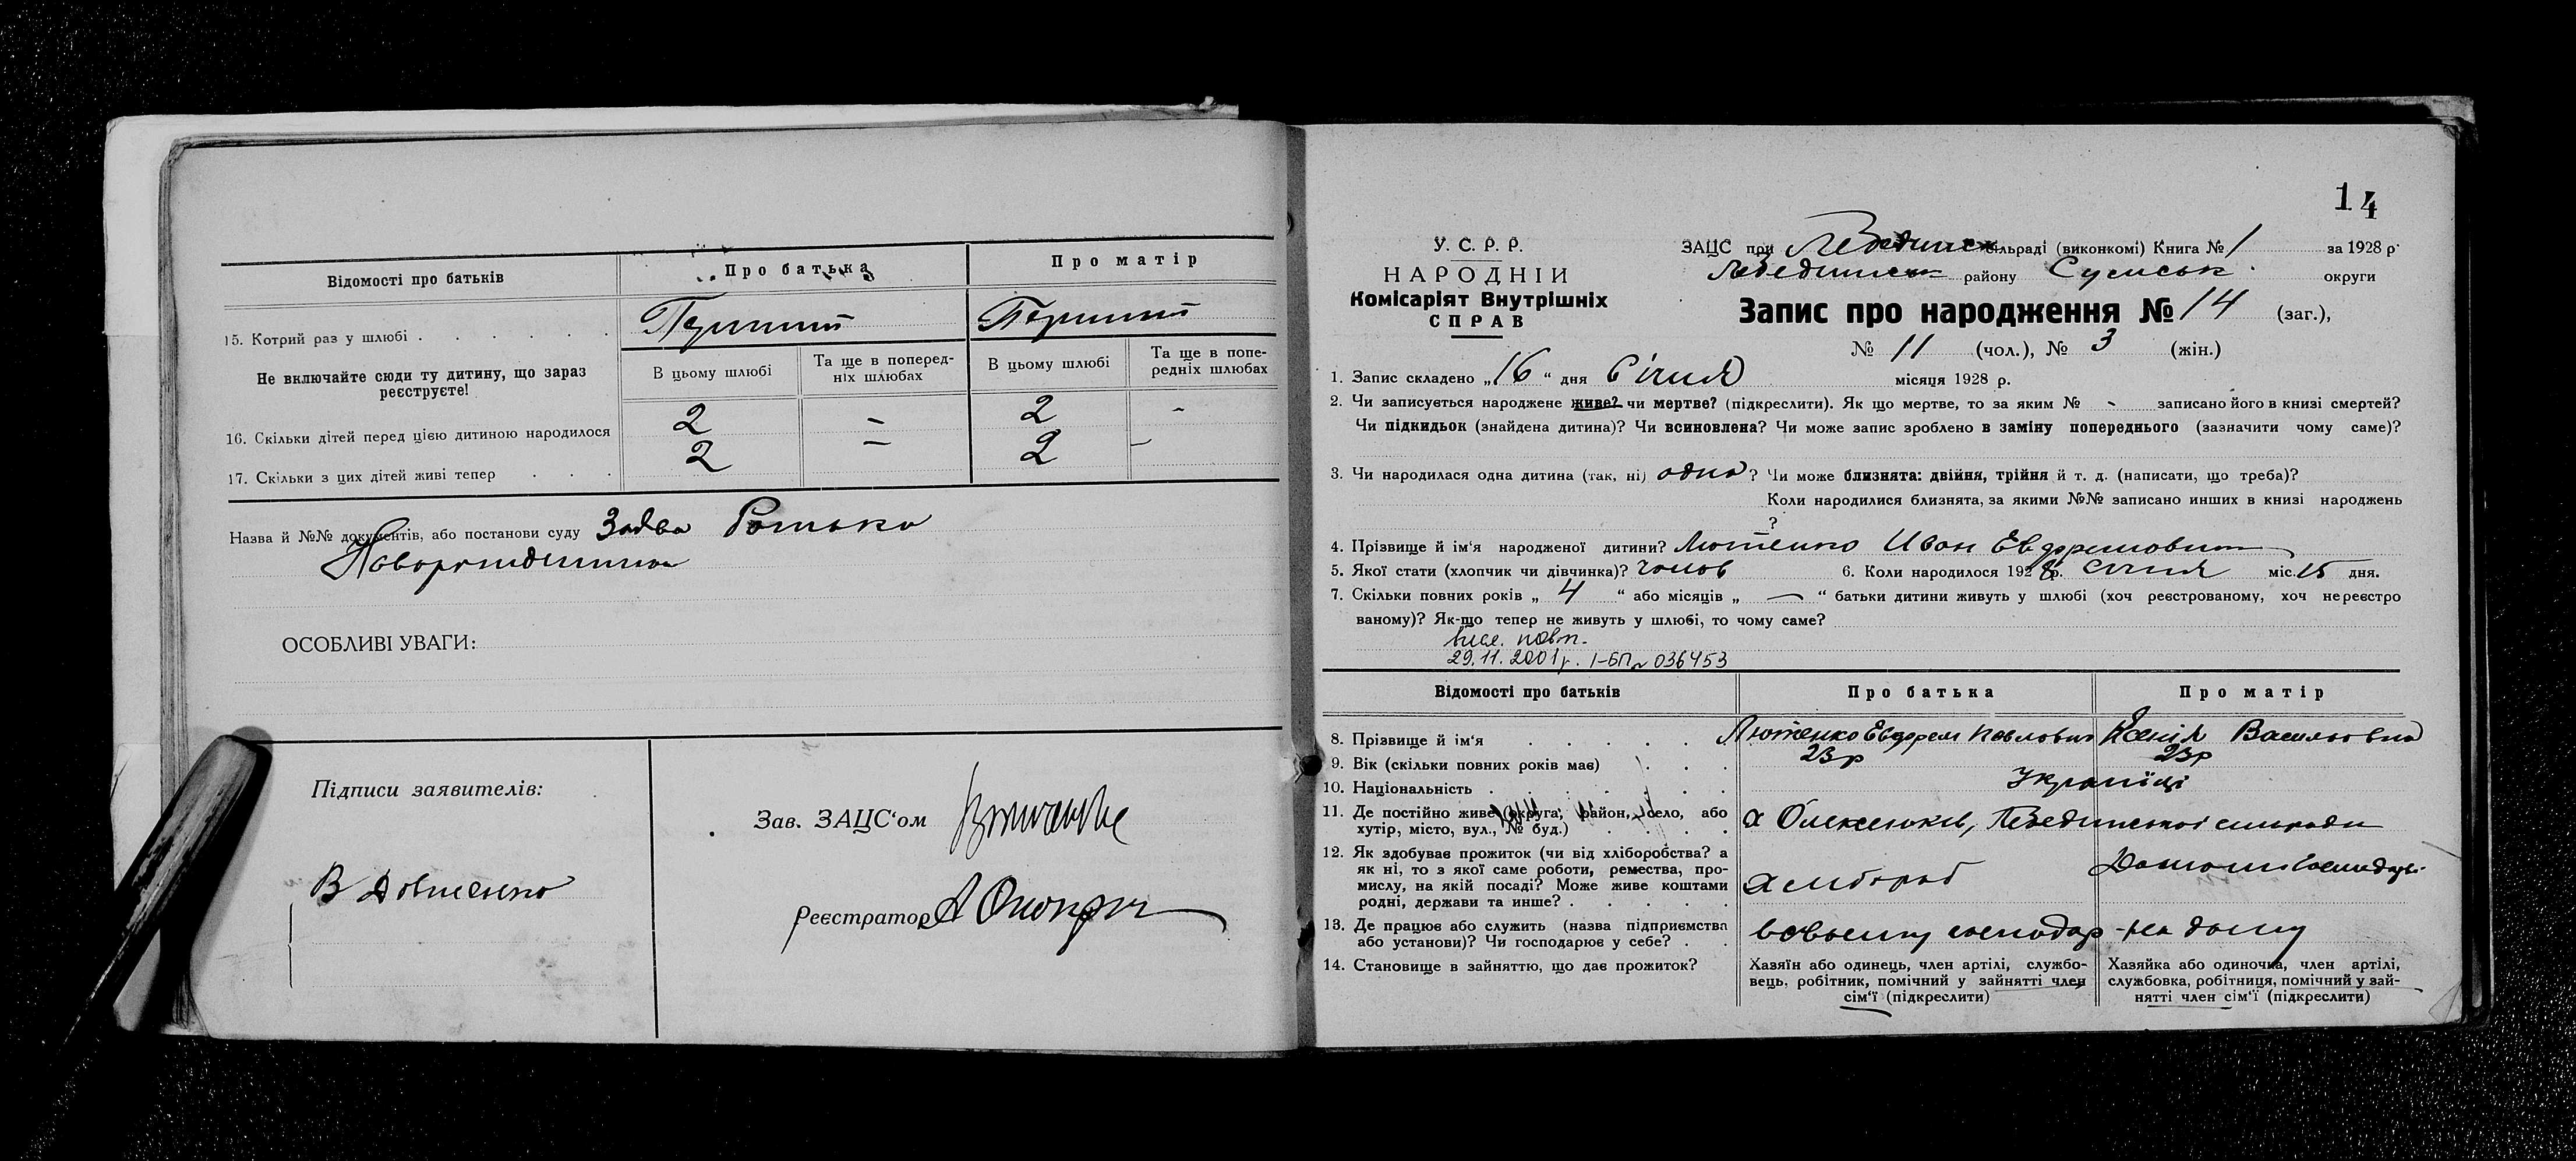 Відомості про батьків
Про батька
Про матір
15. Котрий раз у шлюбі . . . . . .
Перший
Перший
Не включайте сюди ту дитину, що зараз
реєструєте!
В цьому шлюбі
Та ще в поперед-
ніх шлюбах
В цьому шлюбі
Та ще в попе-
редніх шлюбах
16. Скільки дітей перед цією дитиною народилося
2 – 2 -
17. Скільки з цих дітей живі тепер . . .
2 – 2 –
Назва й №№ документів, або постанови суду Заява
ОСОБЛИВІ УВАГИ:
Підписи заявителів:
Зав. ЗАЦС‘ом
В Довженко
Реєстратор
14
У. С. Р. Р.
НАРОДНІЙ
Комісаріят Внутрішніх
СПРАВ
ЗАЦС при Лебединск сільраді (виконкомі) Книга № 1 за 1928 р.
Лебединськ району Сумськ. округи
Запис про народження № 14 (заг.),
№ 11 (чол.), № 3 (жін.)
1. Запис складено „16“ дня Січня місяця 1928 р.
2. Чи записується народжене живе? чи мертве? (підкреслити). Як що мертве, то за яким № - записано його в книзі смертей?
Чи підкидьок (знайдена дитина)? Чи всиновлена? Чи може запис зроблено в заміну попереднього (зазначити чому саме)?
3. Чи народилася одна дитина (так, ні) одна? Чи може близнята: двійня, трійня й т. д. (написати, що треба)?
Коли народилися близнята, за якими №№ записано инших в книзі народжень
?
4. Прізвище й ім‘я народженої дитини? Лютенко Иван Евдоремович
5. Якої стати (хлопчик чи дівчинка)? чолов 6. Коли народилося 1928 р. січня міс. 15 дня.
7. Скільки повних років „ 4 “ або місяців „ — “ батьки дитини живуть у шлюбі (хоч реєстрованому, хоч нереєстро
ваному)? Як-що тепер не живуть у шлюбі, то чому саме?
повт.
29.11.2001р. І-БП № 036453
Відомості про батьків
Про батька
Про матір
8. Прізвище й ім‘я . . . . .
Лютенко Евдорем Павлович
Ксенія Васильовна
9. Вік (скільки повних років має) . . .
23р
23р
10. Національність . . . . . . .
Українці
11. Де постійно живе (округа, район, село, або
хутір, місто, вул., № буд.) . . . .
х Олексенків, Лебединської сільради
12. Як здобуває прожиток (чи від хліборобства? а
як ні, то з якої саме роботи, ремества, про-
мислу, на якій посаді? Може живе коштами
родні, держави та инше? . . . . .
хлібороб
13. Де працює або служить (назва підприємства
або установи)? Чи господарює у себе? . .
в своєму господар
- на дому
14. Становище в зайняттю, що дає прожиток?
Хазяїн або одинець, член артілі, службо-
вець, робітник, помічний у зайнятті член
сім‘ї (підкреслити)
Хазяйка або одиночка, член артілі,
службовка, робітниця, помічний у зай-
нятті член сім‘ї (підкреслити)